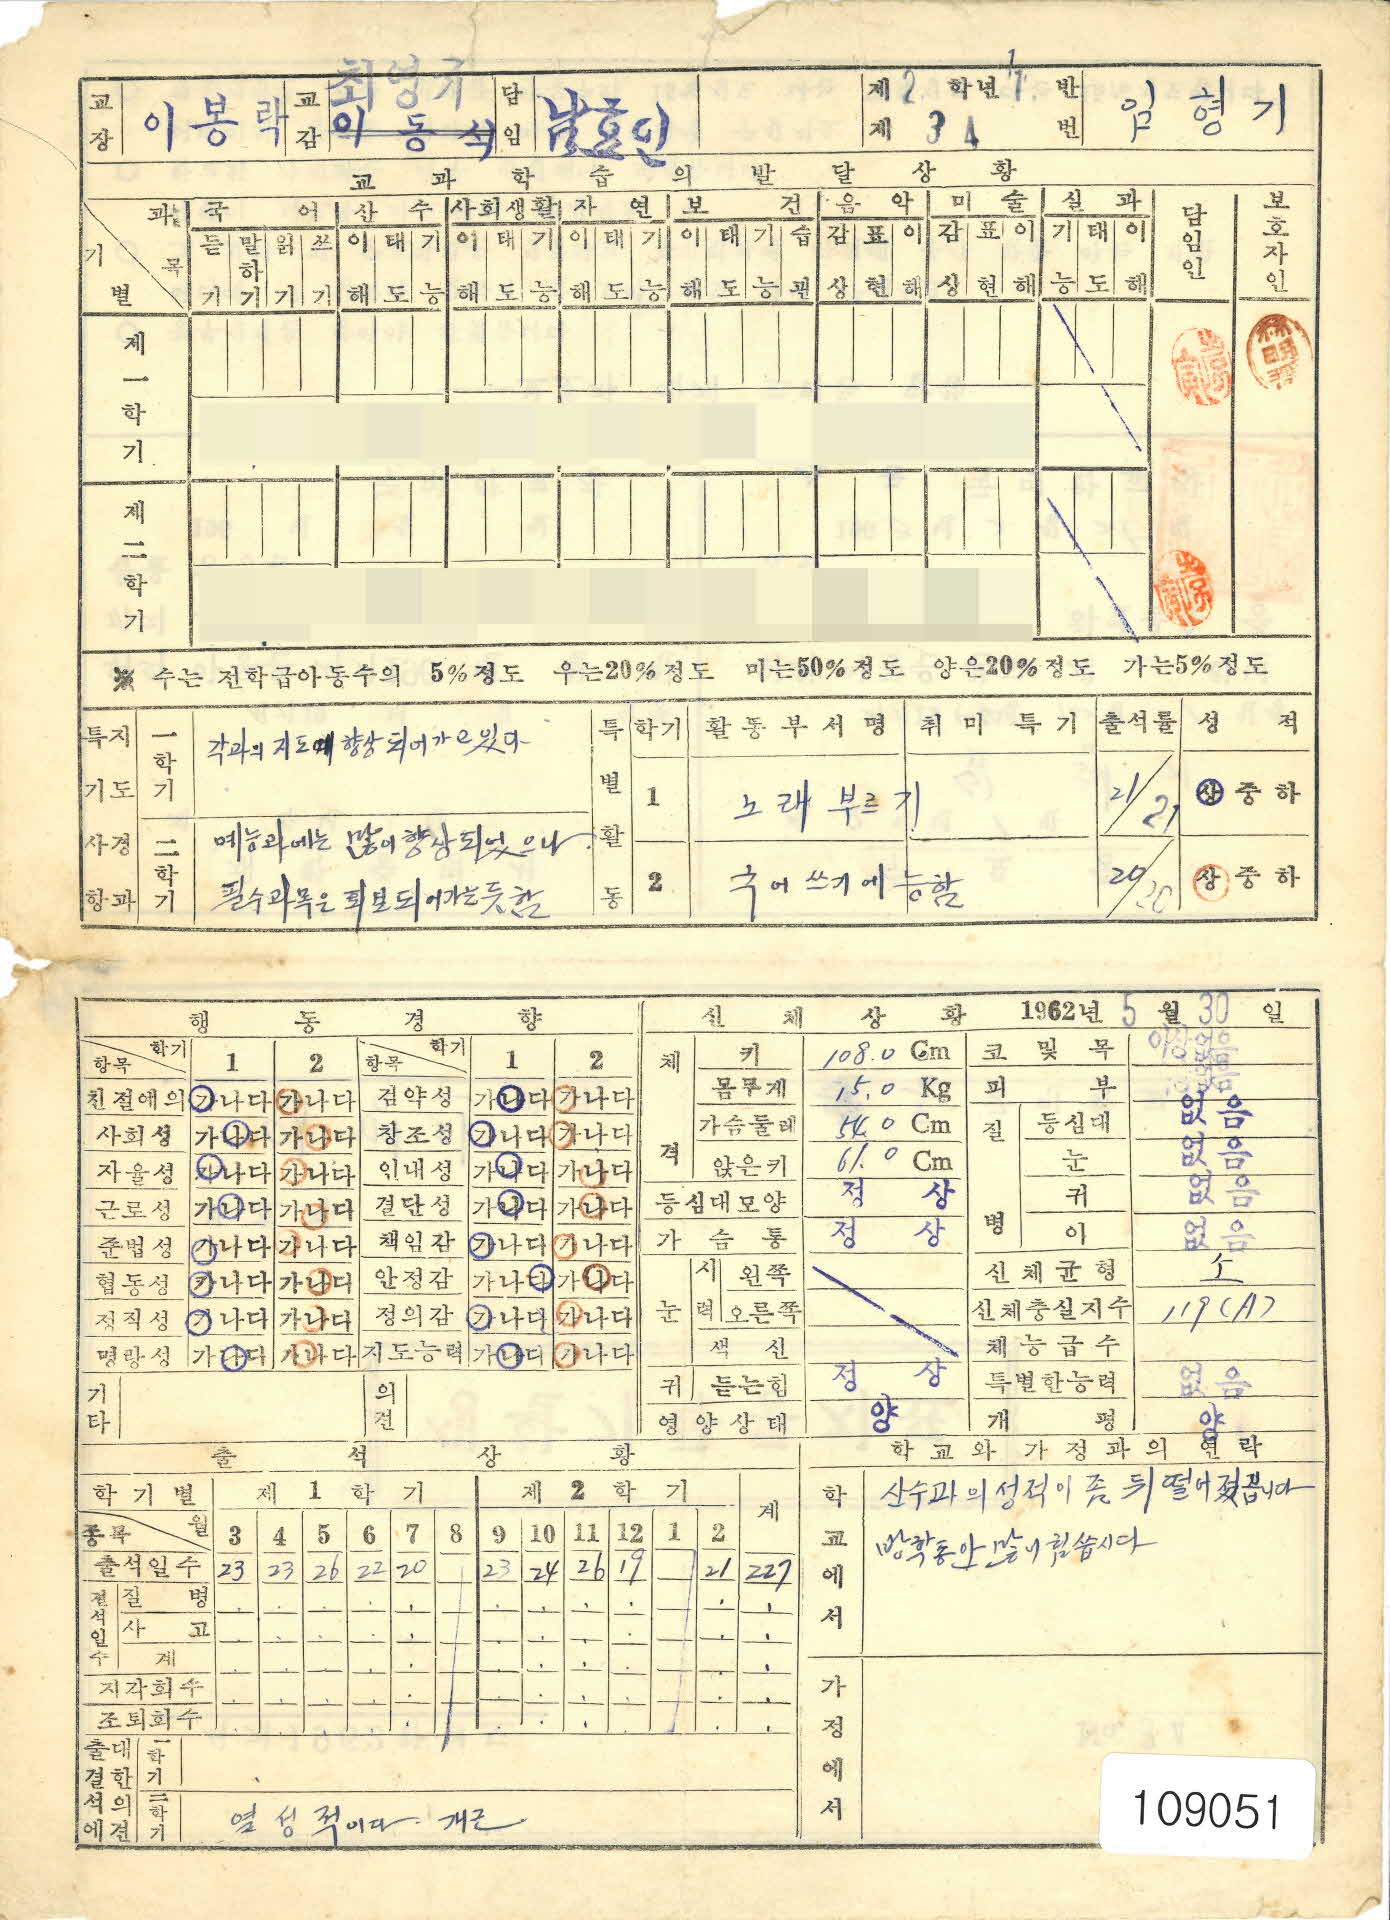 교장 이봉락 교감 최병규 이동석 담임 남효인 제2학년 1/7 반 제 34 번 임형기
교과학습의 발달상황
과목 국어 산수 사회생활 자연 보건 음악 미술 실과 담임인 보호자인
기별 듣기 말하기 읽기 쓰기 이해 태도 기능 이해 태도 기능 이해 태도 기능 이해 태도 기능 습관 감상 표현 이해 감상 표현 이해 기능 태도 이해
제一학기
제二학기
※ 수는 전학급아동수의 5%정도 우는20%정도 미는50%정도 양은20%정도 가는5%정도
특기사항과 지도경과 특별활동 학기 활동부서명 취미특기 출석률 성적
一학기 각과의 지도에 향상되어가고있다 1 노래 부르기 21/21 상 중 하
二학기 예능과에는 많이 향상되었으나 필수과목은 퇴보되어가는듯함 2 국어 쓰기에 능함 20/20 상 중 하
행동경향
항목 학기 1 2 항목 학기 1 2
친절예의 가나다 가나다 검약성 가나다 가나다
사회성 가나다 가나다 창조성 가나다 가나다
자율성 가나다 가나다 인내성 가나다 가나다
근로성 가나다 가나다 결단성 가나다 가나다
준법성 가나다 가나다 책임감 가나다 가나다
협동성 가나다 가나다 안정감 가나다 가나다
정직성 가나다 가나다 정의감 가나다 가나다
명랑성 가나다 가나다 지도능력 가나다 가나다
기타 의견
신체상황 1962년 5월 30일
체격 키 108.0 Cm 코 및 목 이상없음
몸무게 15.0 Kg 피부 없음
가슴둘레 54.0 Cm 질병 등심대 없음
앉은키 61.0 Cm 눈 없음
등심대모양 정상 귀 없음
가슴통 정상 이 없음
눈 시력 왼쪽 신체균형 소
오른쪽 신체충실지수 119(A)
색신 체능급수
귀 듣는힘 정상 특별한능력 없음
영양상태 양 개평 양
출석상황
학기별 제1학기 제2학기 계
종목 월 3 4 5 6 7 8 9 10 11 12 1 2
출석일수 23 23 26 22 20 23 24 26 19 21 227
결석일수 질병
사고
계
지각회수
조퇴회수
출결석에 대한 의견 一학기
二학기 열성적이다. 개근
학교와 가정과의 연락
학교에서 산수과의 성적이 좀 뒤떨어졌읍니다
방학동안 많이 힘씁시다
가정에서
109051